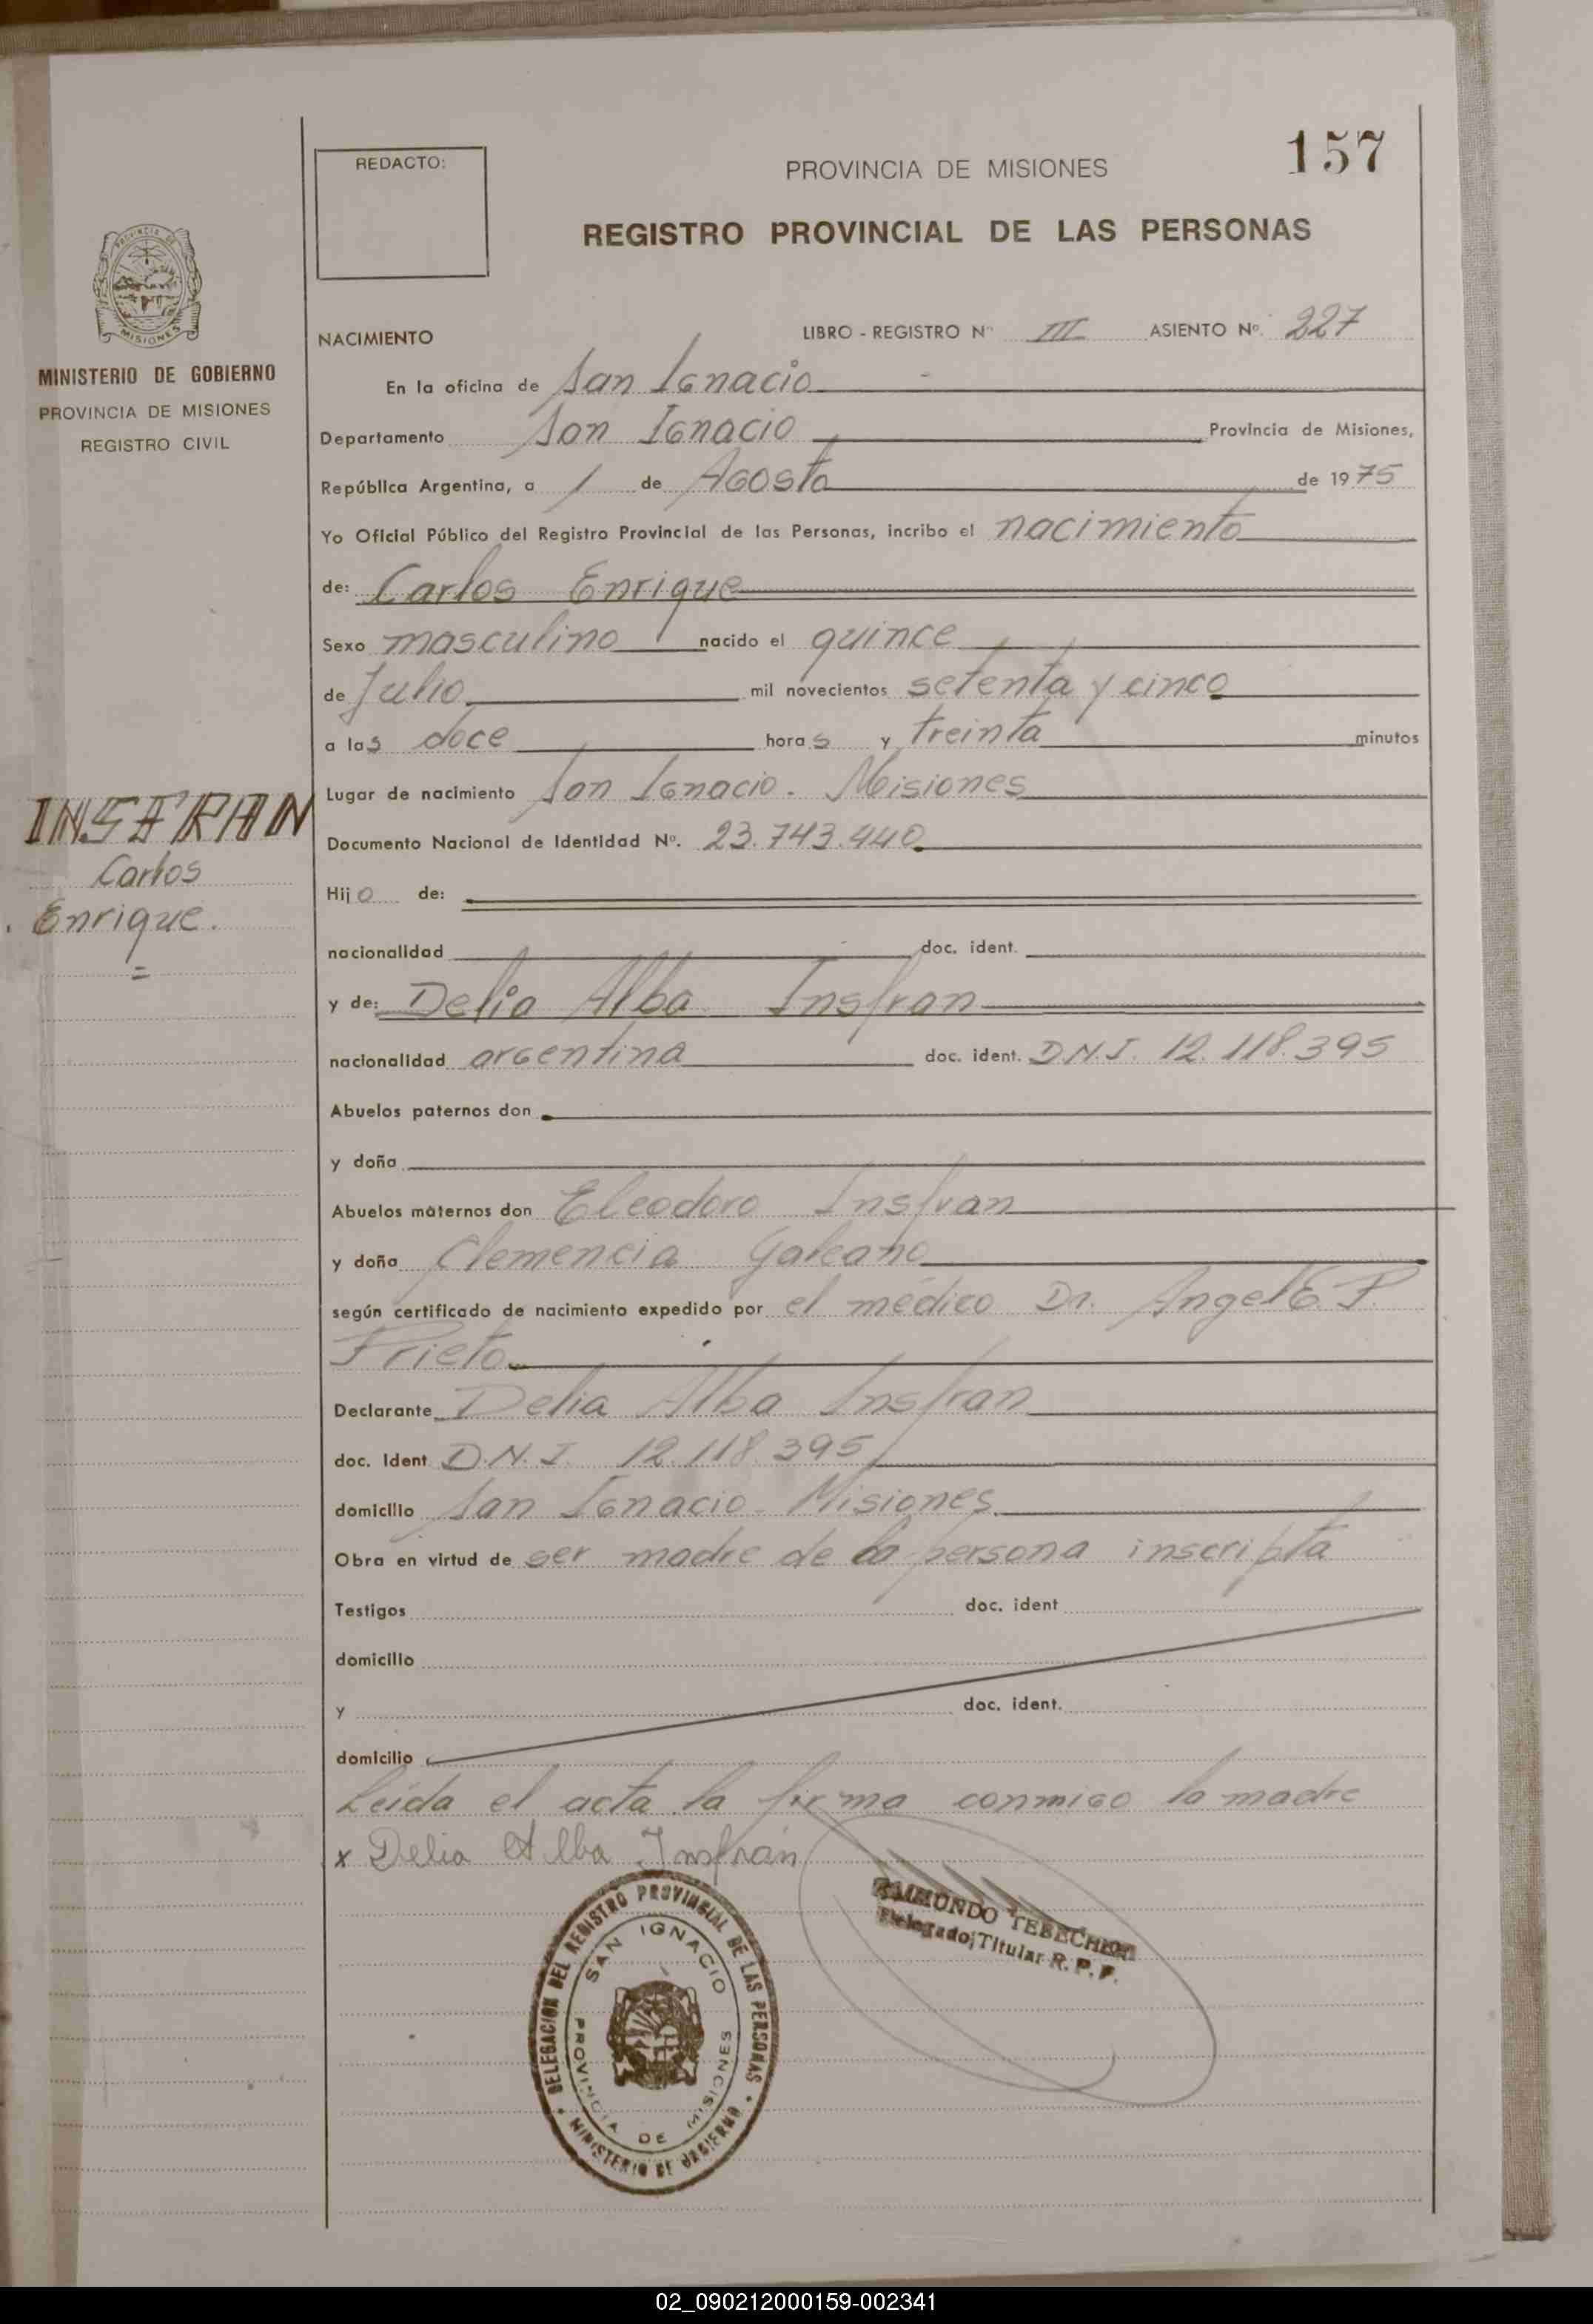 157
REDACTO:
PROVINCIA DE MISIONES
REGISTRO PROVINCIAL DE LAS PERSONAS
PROVINCIA DE
MISIONES
MINISTERIO DE GOBIERNO
PROVINCIA DE MISIONES
REGISTRO CIVIL
NACIMIENTO LIBRO - REGISTRO Nº III ASIENTO Nº. 227
En la oficina de San Ignacio
Departamento San Ignacio Provincia de Misiones,
República Argentina, a 1 de Agosto de 1975
Yo Oficial Público del Registro Provincial de las Personas, incribo el nacimiento
de: Carlos Enrique
Sexo masculino nacido el quince
de Julio mil novecientos setenta y cinco
a las doce horas y treinta minutos
INSFRAN
Carlos
Enrique.
=
Lugar de nacimiento San Ignacio. Misiones
Documento Nacional de Identidad Nº. 23.743.440
Hijo de:
nacionalidad doc. ident.
y de: Delia Alba Insfran
nacionalidad argentina doc. ident. D.N.I. 12.118.395
Abuelos paternos don
y doña
Abuelos maternos don Eleodoro Insfran
y doña Clemencia Galeano
según certificado de nacimiento expedido por el médico Dr. Angel E. P.
Prieto
Declarante Delia Alba Insfran
doc. Ident D.N.I. 12.118.395
domicilio San Ignacio - Misiones
Obra en virtud de ser madre de la persona inscripta
Testigos doc. ident
domicilio
y doc. ident.
domicilio
Leída el acta la firma conmigo la madre
x Delia Alba Insfrán
RAIMUNDO TEBECHERI
Delegado Titular R. P. P.
DELEGACION DEL REGISTRO PROVINCIAL DE LAS PERSONAS
SAN IGNACIO
PROVINCIA DE MISIONES
MINISTERIO DE GOBIERNO
02_090212000159-002341